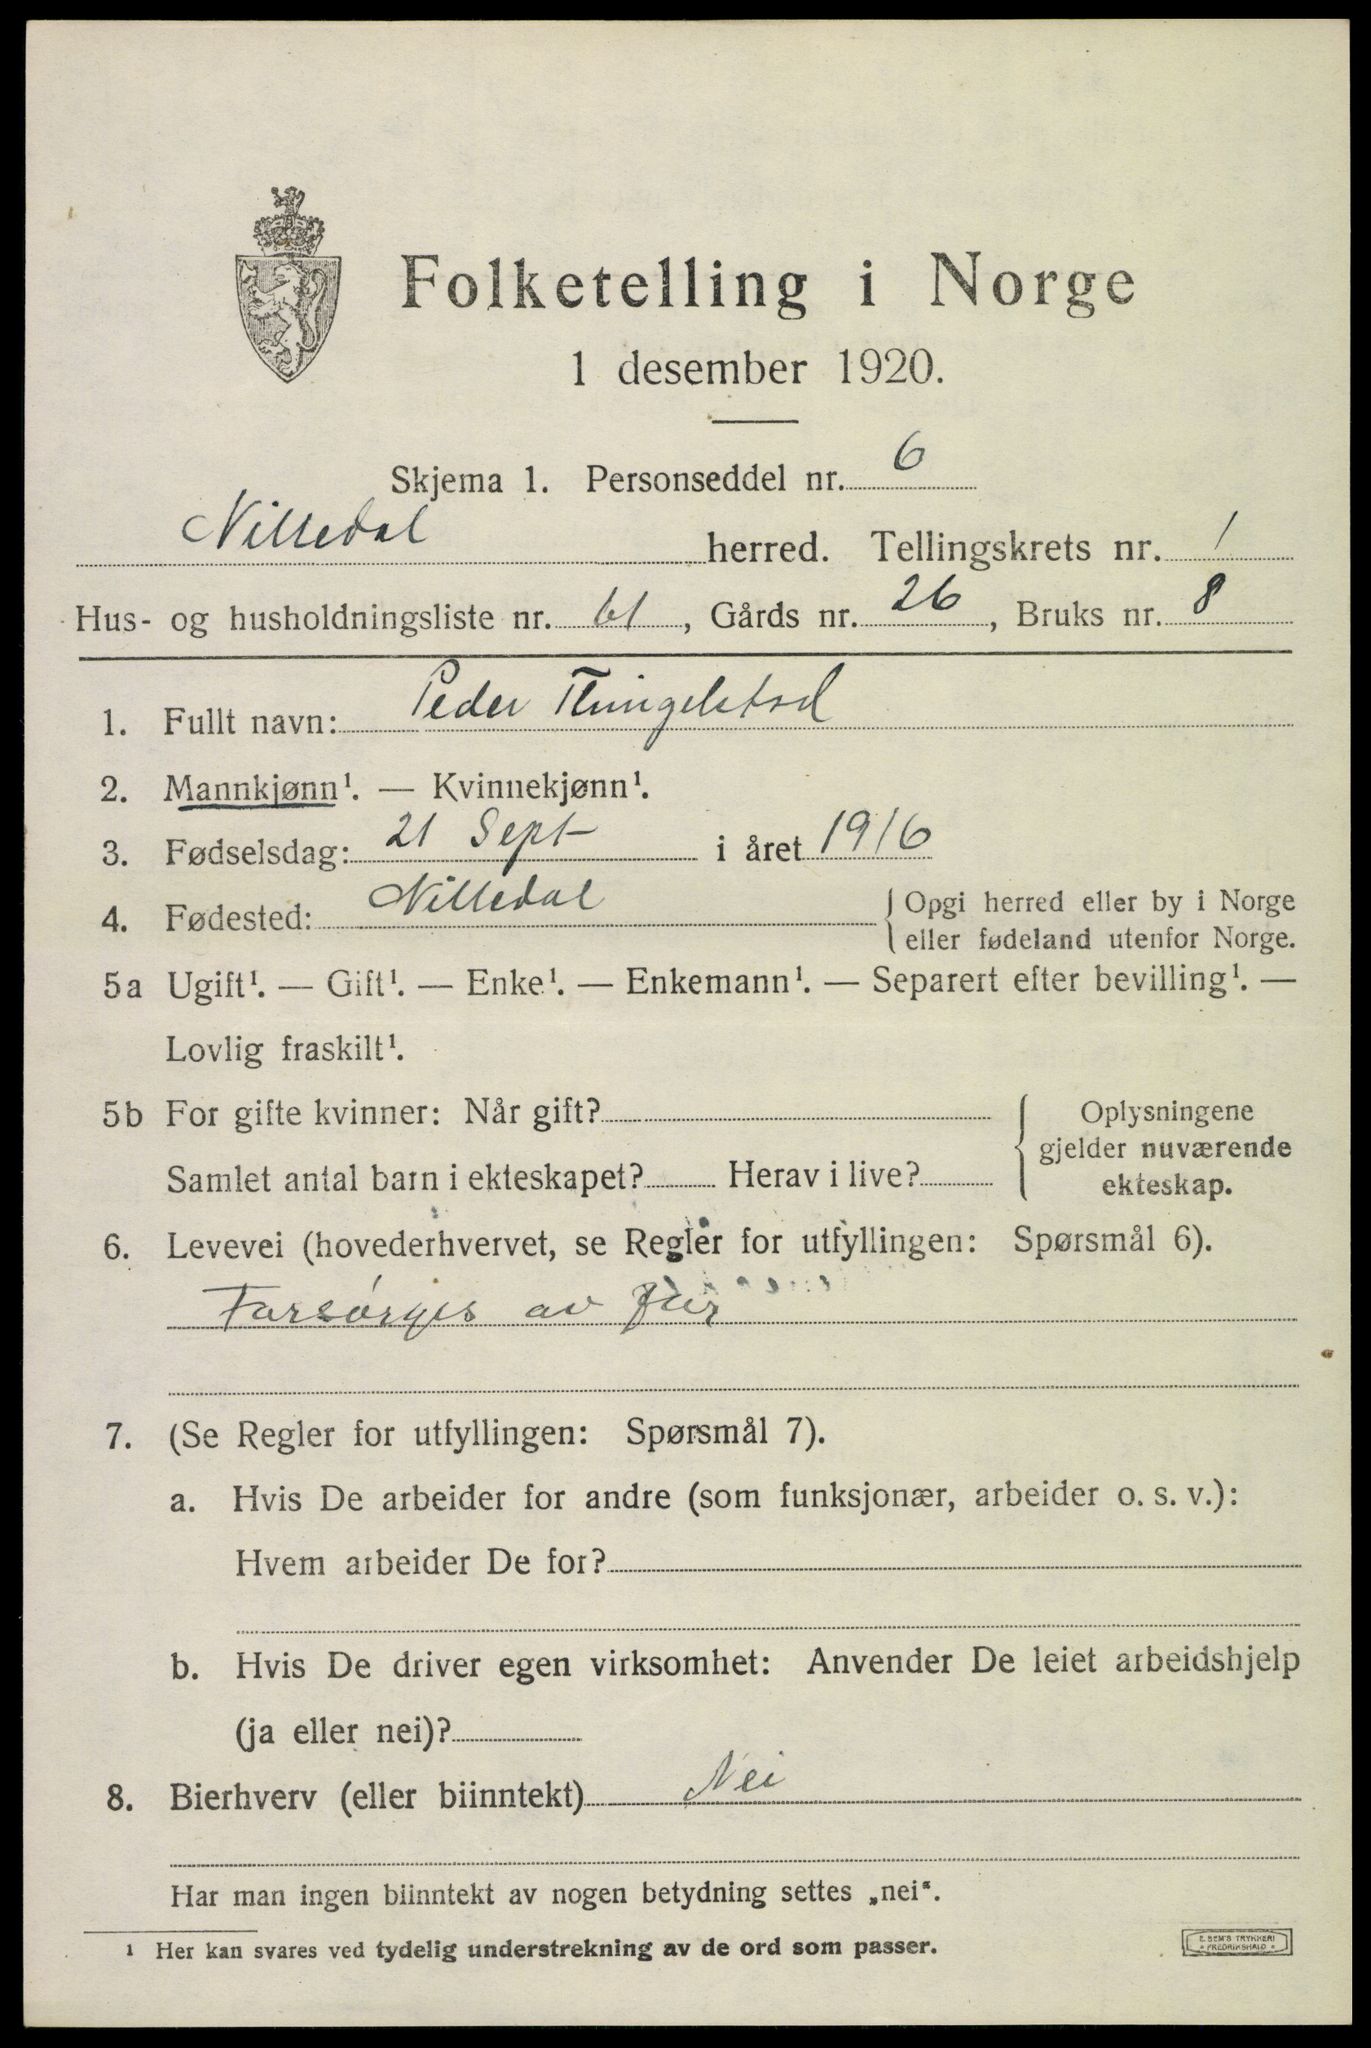 Folketelling i Norge
1 desember 1920.
Skjema 1. Personseddel nr. 6
Nittedal herred. Tellingskrets nr. 1
Hus- og husholdningsliste nr. 61, Gårds nr. 26, Bruks nr. 8
1. Fullt navn: Peder Thingelstad
2. Mannkjønn¹. — Kvinnekjønn¹.
3. Fødselsdag: 21 Sept i året 1916
4. Fødested: Nittedal { Opgi herred eller by i Norge
eller fødeland utenfor Norge.
5a Ugift¹. — Gift¹. — Enke¹. — Enkemann¹. — Separert efter bevilling¹. —
Lovlig fraskilt¹.
5b For gifte kvinner: Når gift? { Oplysningene
gjelder nuværende
Samlet antal barn i ekteskapet? Herav i live? ekteskap.
6. Levevei (hovederhvervet, se Regler for utfyllingen: Spørsmål 6).
Forsørges av far
7. (Se Regler for utfyllingen: Spørsmål 7).
a. Hvis De arbeider for andre (som funksjonær, arbeider o. s. v.):
Hvem arbeider De for?
b. Hvis De driver egen virksomhet: Anvender De leiet arbeidshjelp
(ja eller nei)?
8. Bierhverv (eller biinntekt) Nei
Har man ingen biinntekt av nogen betydning settes „nei“.
¹ Her kan svares ved tydelig understrekning av de ord som passer.
E. SEM'S TRYKKERI
FREDRIKSHALD